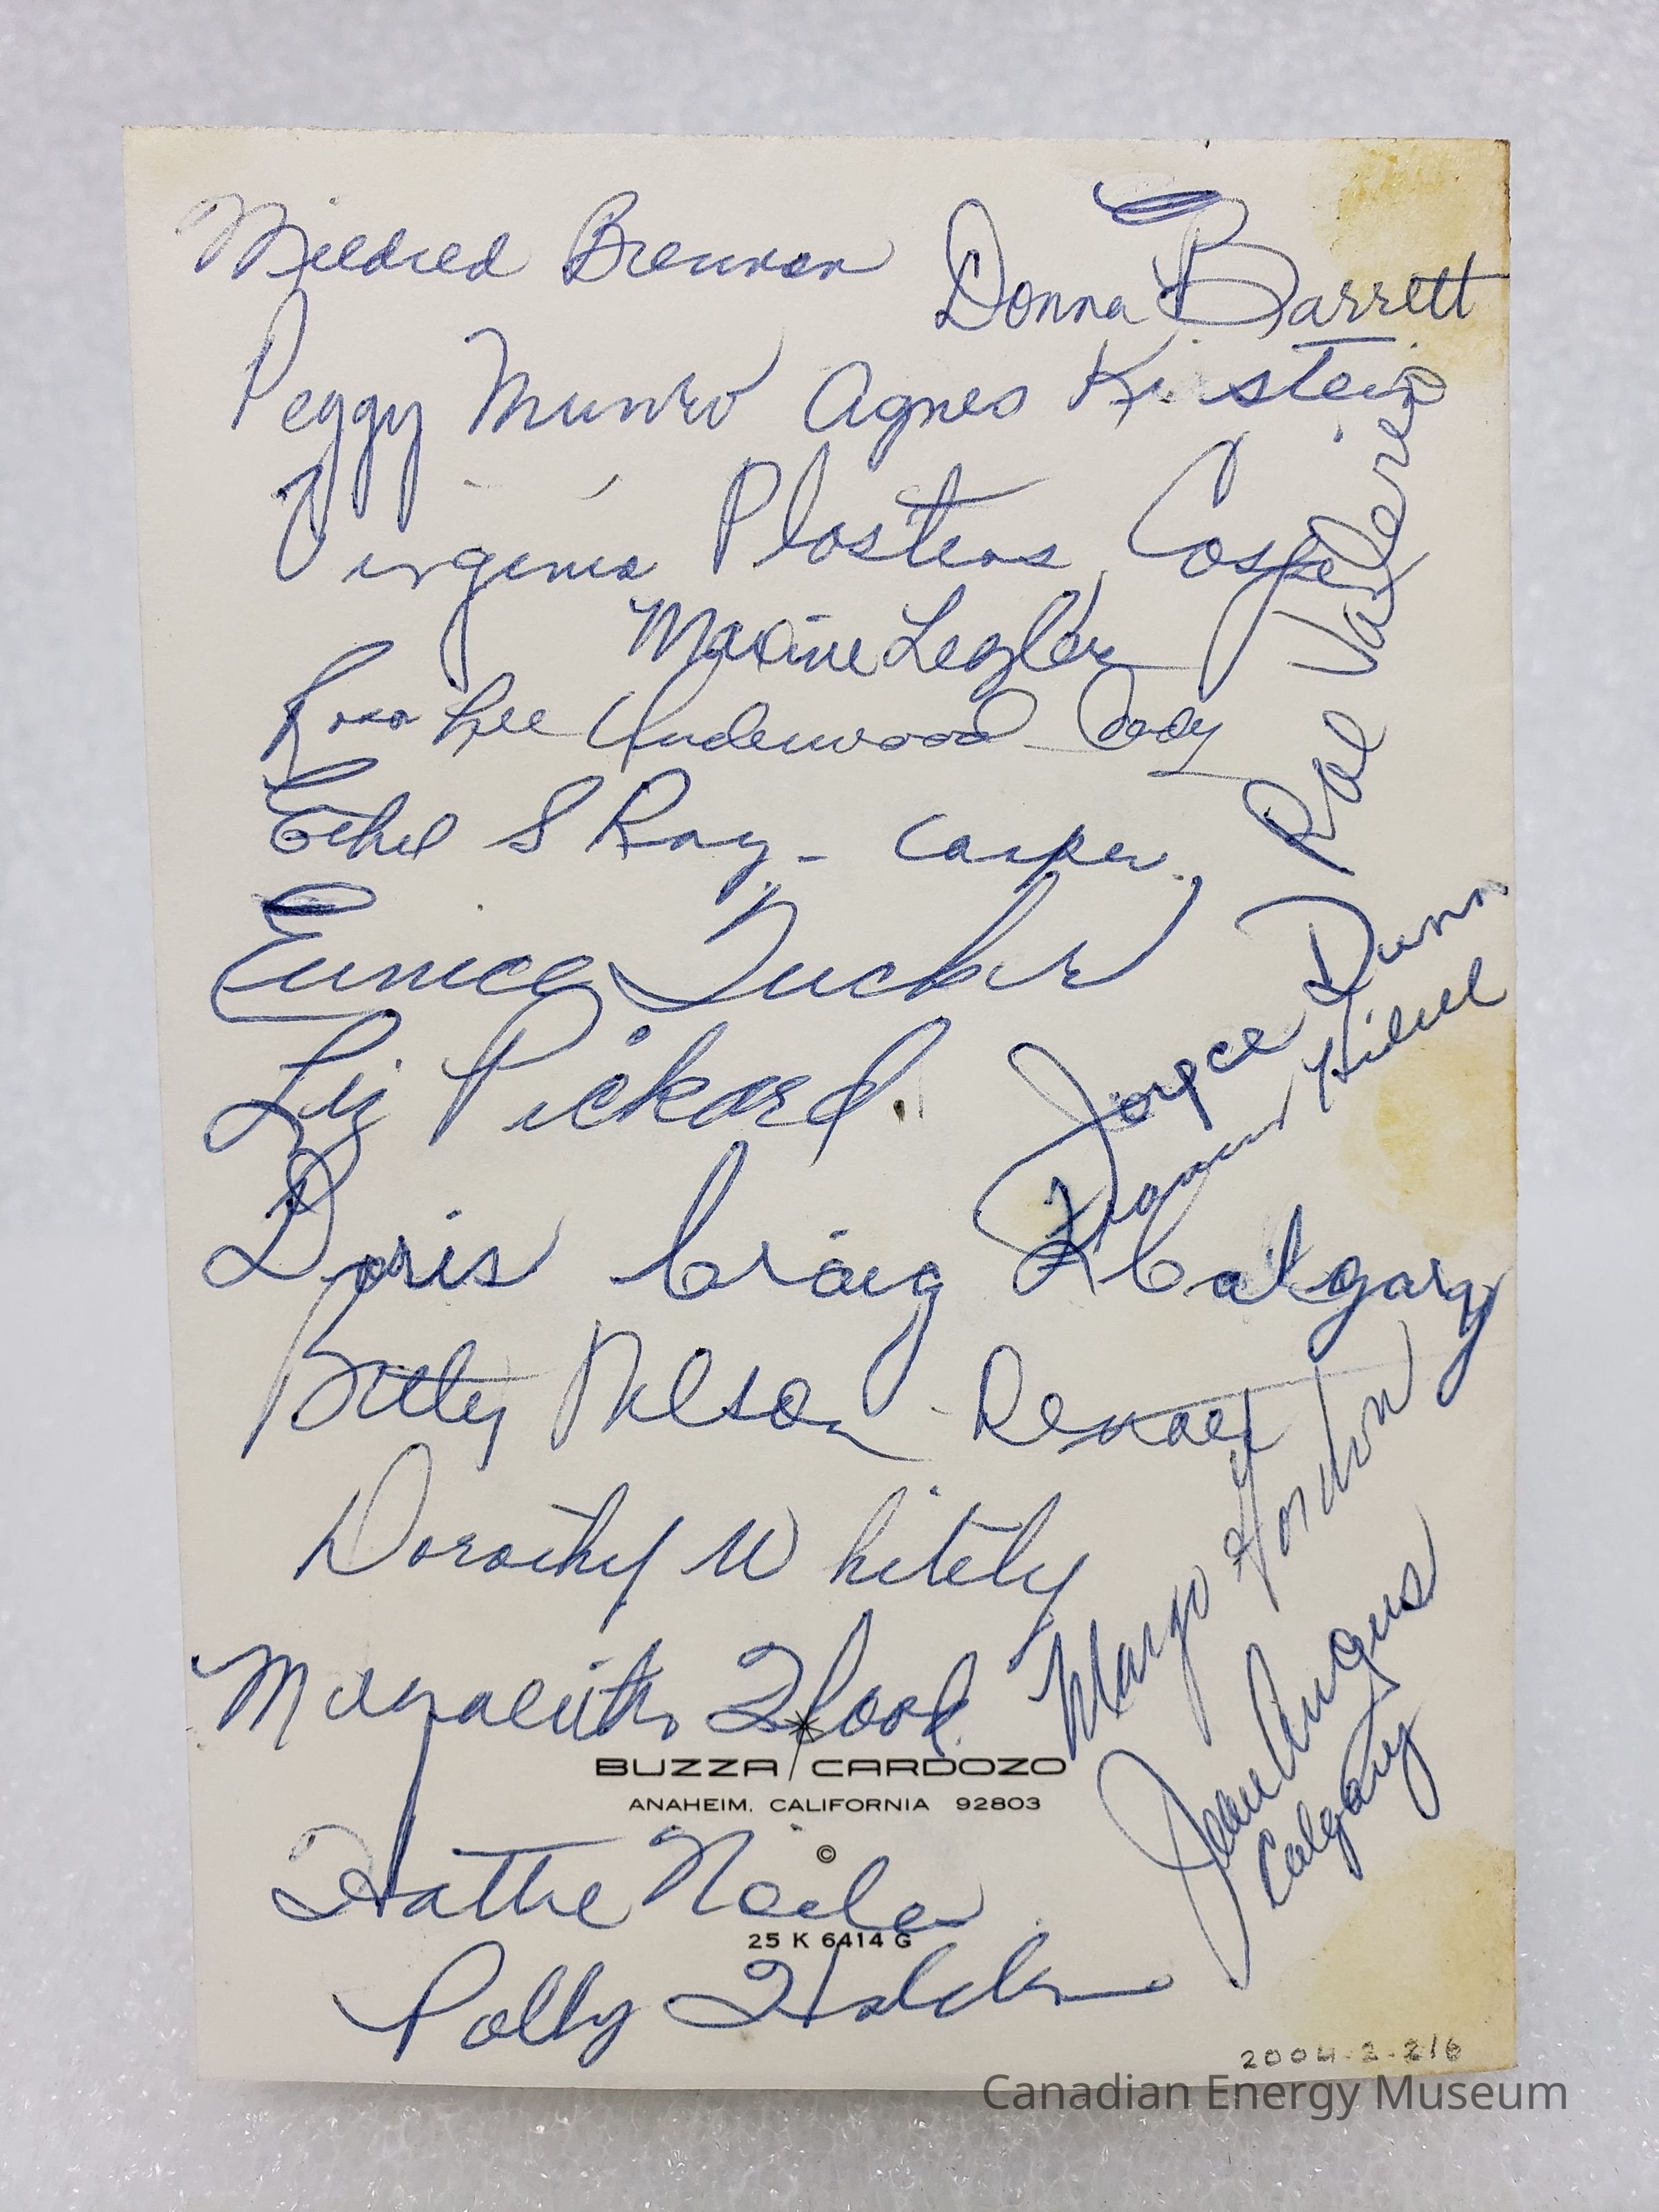 Mildred Brennan
Donna Barrett
Peggy Munro Agnes Kirstein
Virginia Plosteas, Casper
Maxine Legler
Rosa Lee Underwood Cody
Rae
Ethel S Ray - Casper.
Eunice Tucker
Joyce Dunn
Liz Pickard
Doris Craig Calgary
Betty Nelson - Denver
Dorothy Whitely
Margo Gordon
Flood
Jean Angus
Calgary
BUZZA CARDOZO
ANAHEIM, CALIFORNIA 92803
©
Hattie
25 K 6414 G
Polly
2004.2.216
Canadian Energy Museum